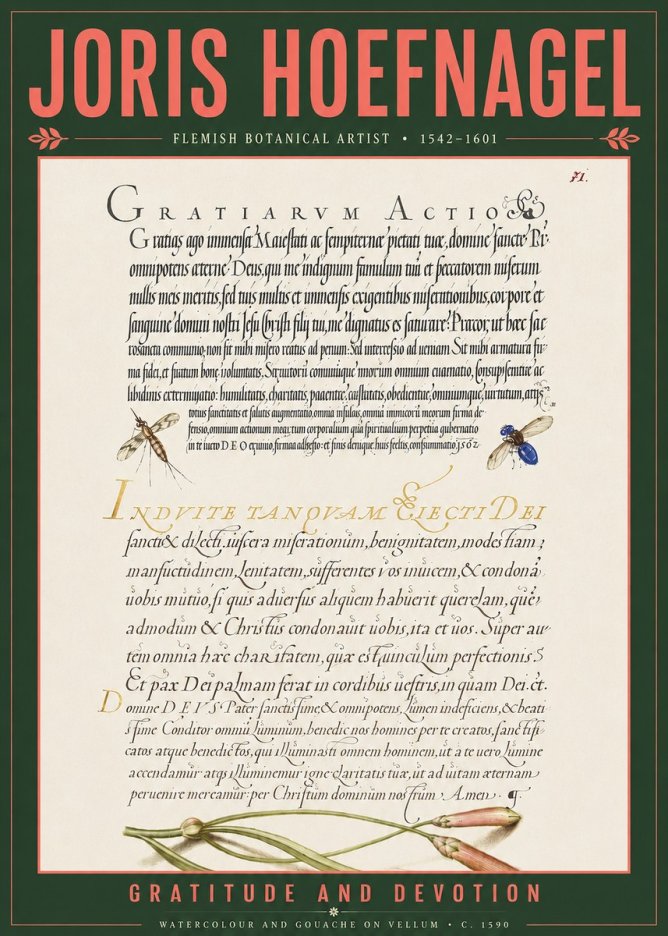 JORIS HOEFNAGEL
FLEMISH BOTANICAL ARTIST • 1542–1601
71.
GRATIARVM ACTIO
Gratias ago immensæ Maiestati ac sempiternæ pietati tuæ, domine sancte Pr
omnipotens æterne Deus, qui me indignum famulum tuū et peccatorem miserum
nullis meis meritis, sed tuis multis et immensis exigentibus miserationibus, corpore et
sanguine domini nostri Jesu Christi filij tui, me dignatus es saturare: Præcor, ut hæc sac
rosancta communio, non sit mihi misero reatus ad penam: Sed intercessio ad veniam Sit mihi armatura fi-
ma fidei, et scutum bonę voluntatis,
libidinis exterminatio: humilitatis, charitatis, patientiæ, castitatis, obedientiæ, omniumque, virtutum,
totius sanctitatis et salutis augmentatio, omnia omniū inimicorū meorum firma de
fensio, omnium actionum mearum tam corporalium quā spiritualium perpetua gubernatio
in te iucto DEO et finis denique huis felix, consummatio 1562
INDVITE TANQVAM ELECTI DEI
sancti & dilecti, uiscera miserationum, benignitatem, modestiam;
mansuetudinem, Lenitatem, sufferentes vos inuicem, & condonā
uobis mutuo, si quis aduersus aliquem habuerit querelam, quē
admodum & Christus condonauit uobis, ita et uos. Super au-
tem omnia hæc charitatem, quæ est uinculum perfectionis
Et pax Dei palmam ferat in cordibus uestris, in quam Dei. et.
Domine DEVS Pater sanctissime, & omnipotens, Lumen indeficiens, & beati
ssime Conditor omniū Luminum, benedic nos homines per te creatos, sanctifi-
catos atque benedictos, qui illuminasti omnem hominem, ut a te uero Lumine
accendamur atqs illuminemur igne claritatis tuæ, ut ad uitam æternam
peruenire mereamur: per Christum dominum nostrum Amen.
GRATITUDE AND DEVOTION
WATERCOLOUR AND GOUACHE ON VELLUM • C. 1590